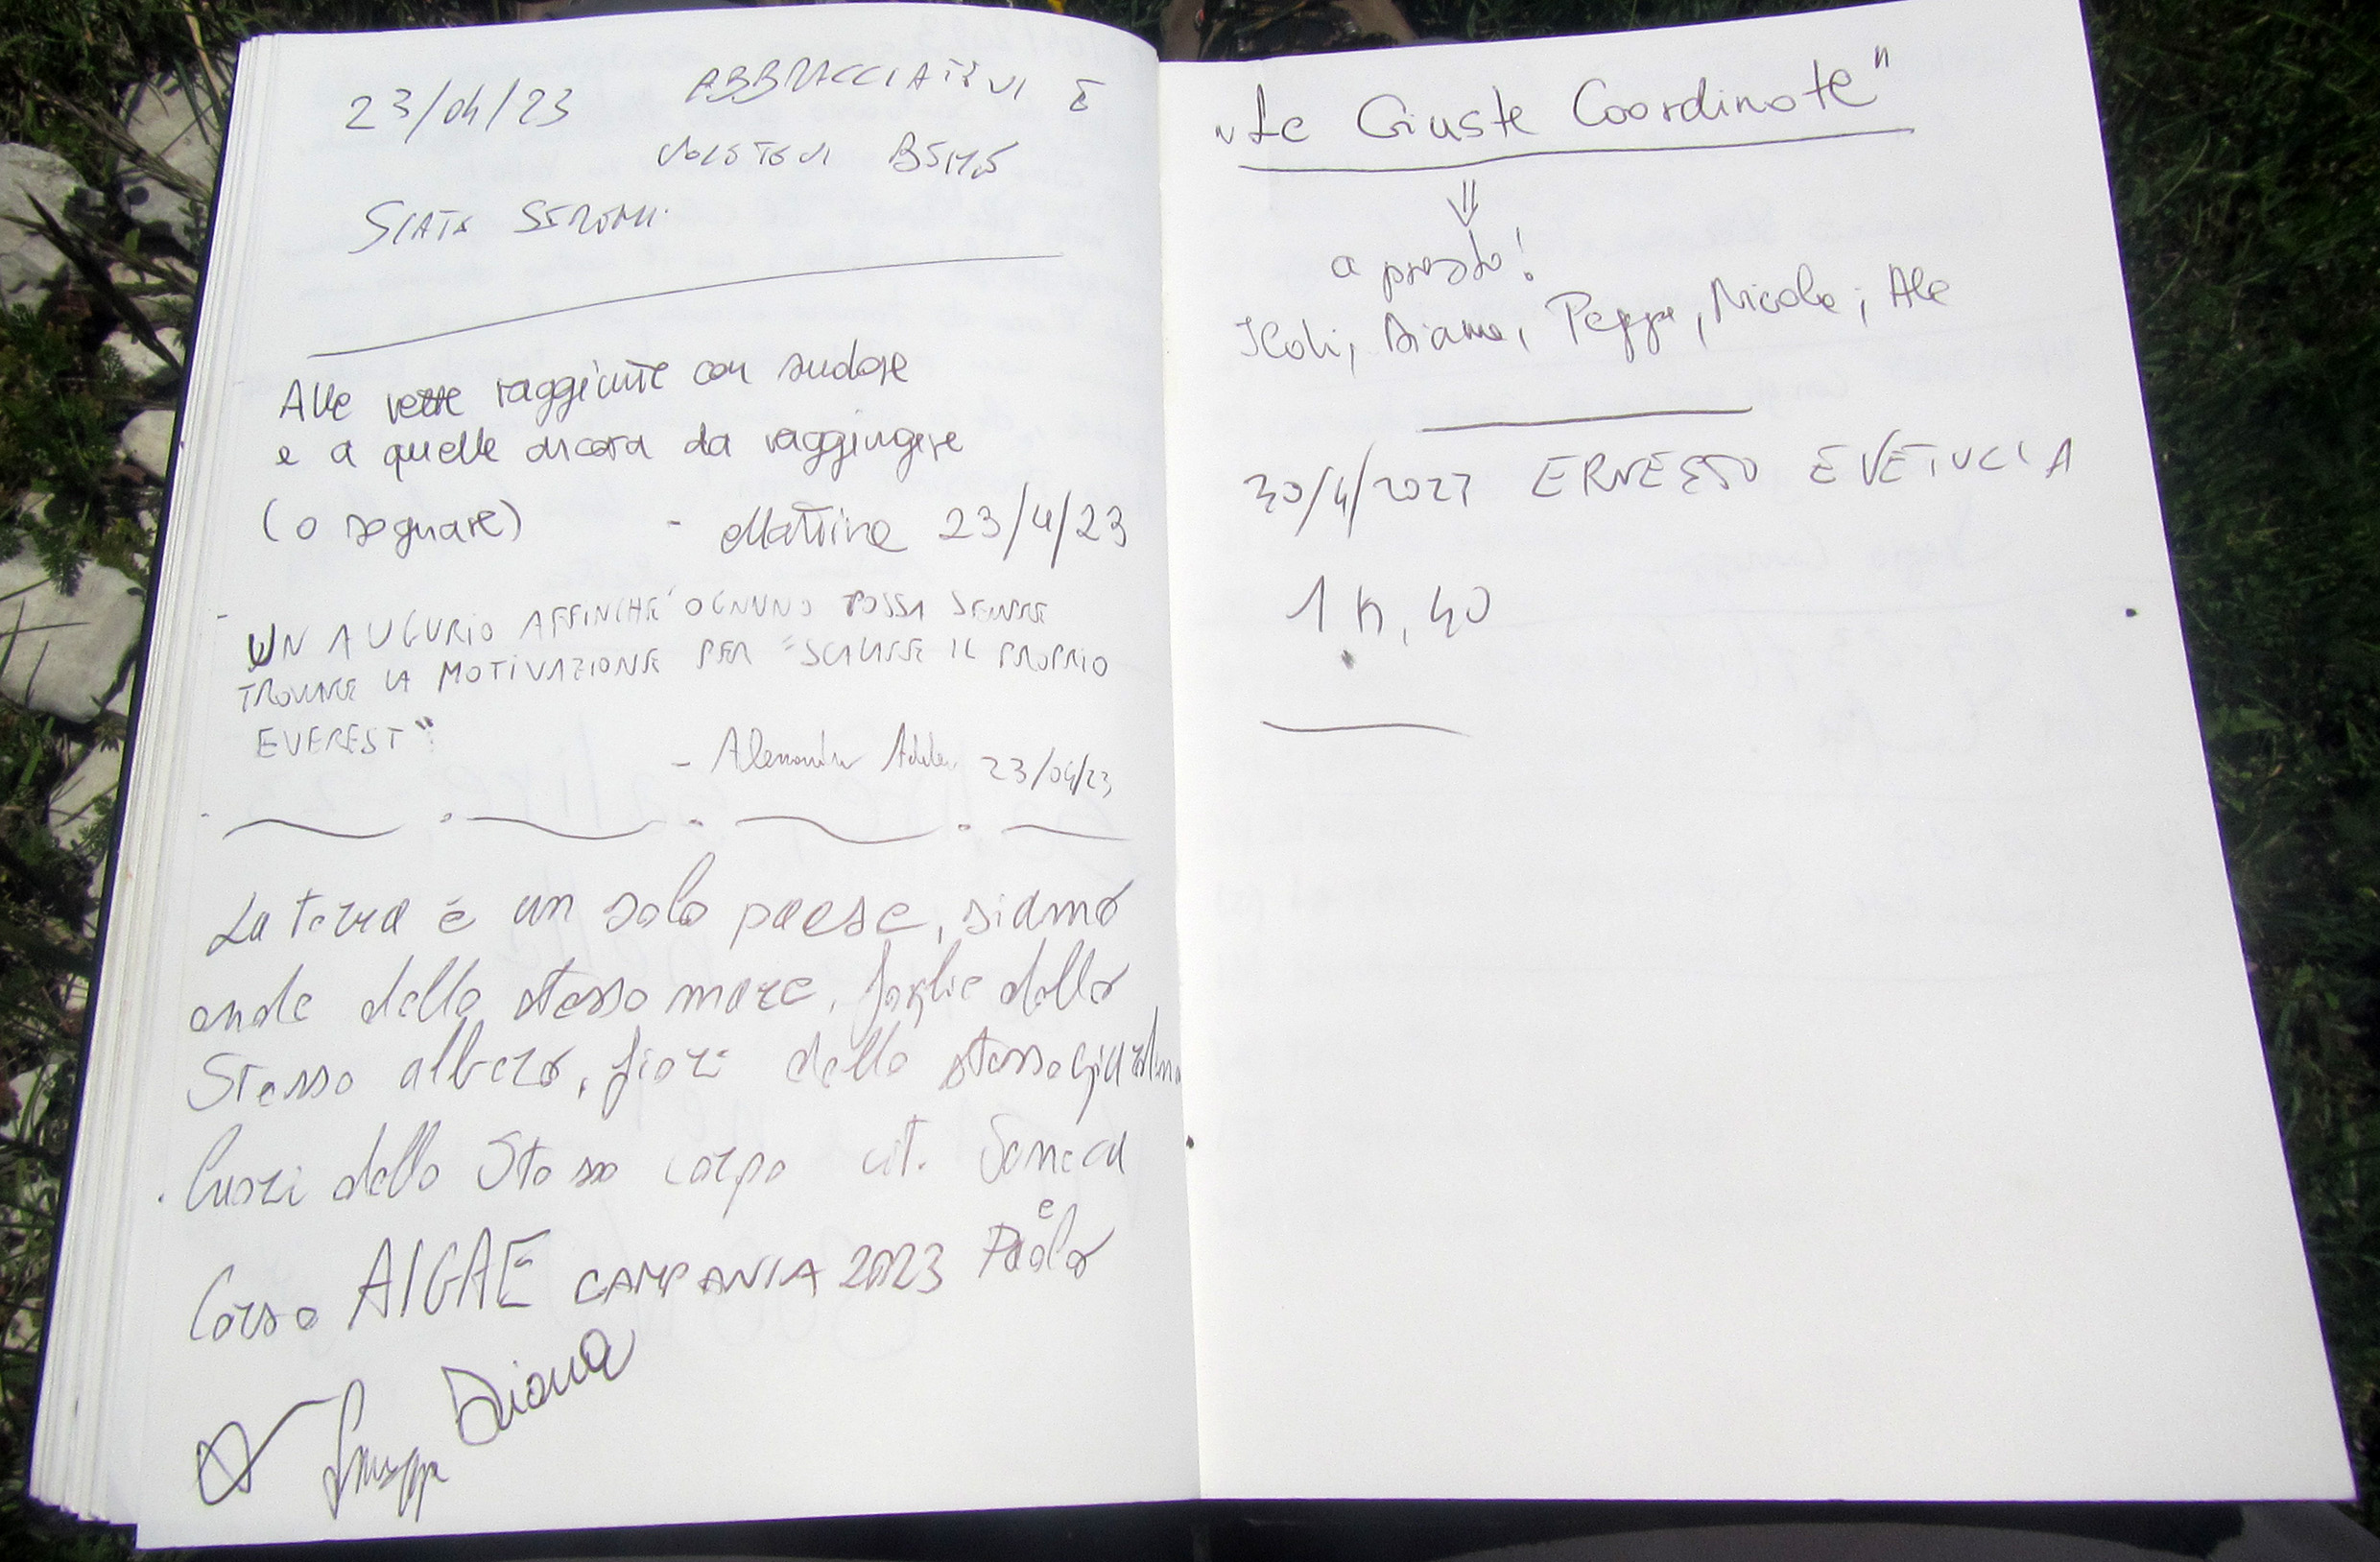 23/04/23 ABBRACCIATEVI E
VOLETEVI BENE
SIATE SERENI.
Alle vette raggiunte con sudore
e a quelle ancora da raggiungere
(o sognare) - Mattina 23/4/23
- UN AUGURIO AFFINCHE' OGNUNO POSSA SEMPRE
TROVARE LA MOTIVAZIONE PER "SCALARE IL PROPRIO
EVEREST"
- Alessandra 23/04/23
La terra è un solo paese, siamo
onde dello stesso mare, foglie dello
stesso albero, fiori dello stesso giardino
Cuori dello Stesso corpo cit. Seneca
e
Corso AIGAE CAMPANIA 2023 Paolo
Diana
Giuseppe
"Le Giuste Coordinate"
⇓
a presto!
Diana, Peppe, Nicola, Ale
30/4/2023 ERNESTO E VETUCIA
1 h, 40